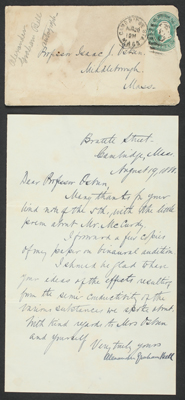 Alexander
Graham Bell
Professor Isaac J. Osbun,
Middleborough,
Mass.
Brattle Street.
Cambridge, Mass.
August 19, 1881.
Dear Professor Osbun,
Many thanks for your
kind note of the 5th, with the little
poem about Mr. McCurdy.
I forward a few copies
of my paper on binaural audition.
I should be glad to have
your ideas of the effects resulting
from the semi conductivity of the
various substances we spoke about.
With kind regards to Mrs Osbun
and yourself
Very truly yours
Alexander Graham Bell